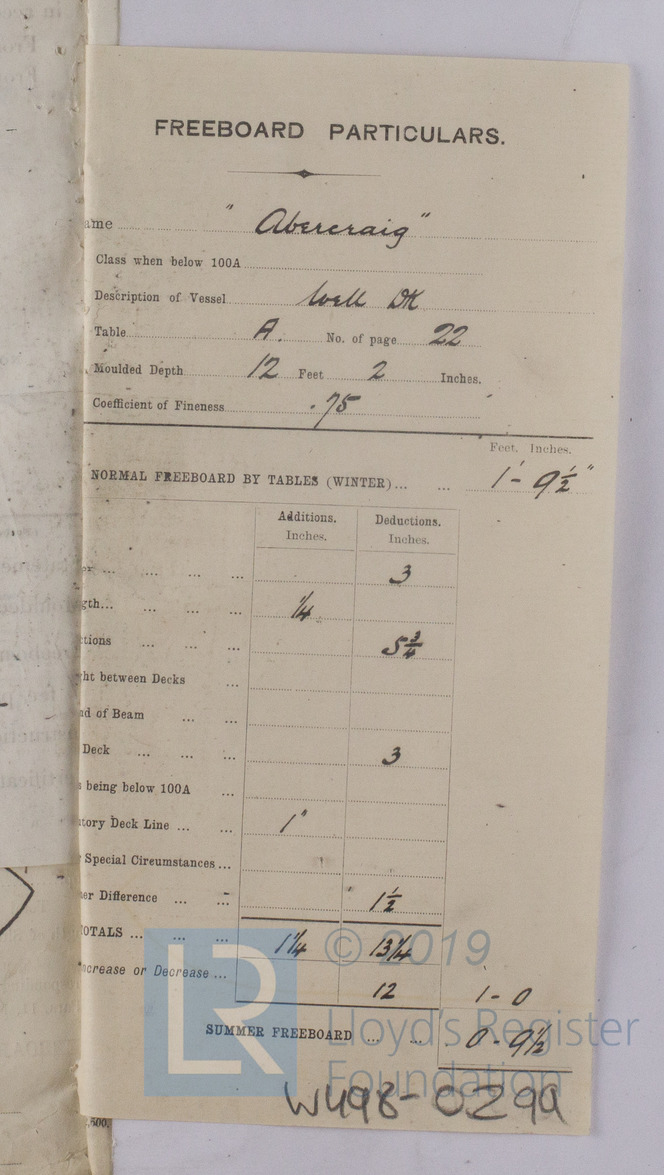 FREEBOARD PARTICULARS.
ame "Abercraig"
Class when below 100A
Description of Vessel Well DK
Table A. No. of page 22
Moulded Depth 12 Feet 2 Inches.
Coefficient of Fineness .75
Feet. Inches.
NORMAL FREEBOARD BY TABLES (WINTER) ... ... 1' - 9½"
Additions. Deductions.
Inches. Inches.
... ... ... ... 3
gth... ... ... ... ¼
ctions ... ... ... 5¾
ht between Decks ...
nd of Beam ... ...
Deck ... ... ... 3
s being below 100A ...
tory Deck Line ... ... 1"
Special Circumstances ...
er Difference ... ... 1½
OTALS ... ... ... 1¼ 13¼
ncrease or Decrease ... 12 1 - 0
SUMMER FREEBOARD ... ... 0 - 9½
W498-0299
,500.
LR
© 2019
Lloyd's Register
Foundation